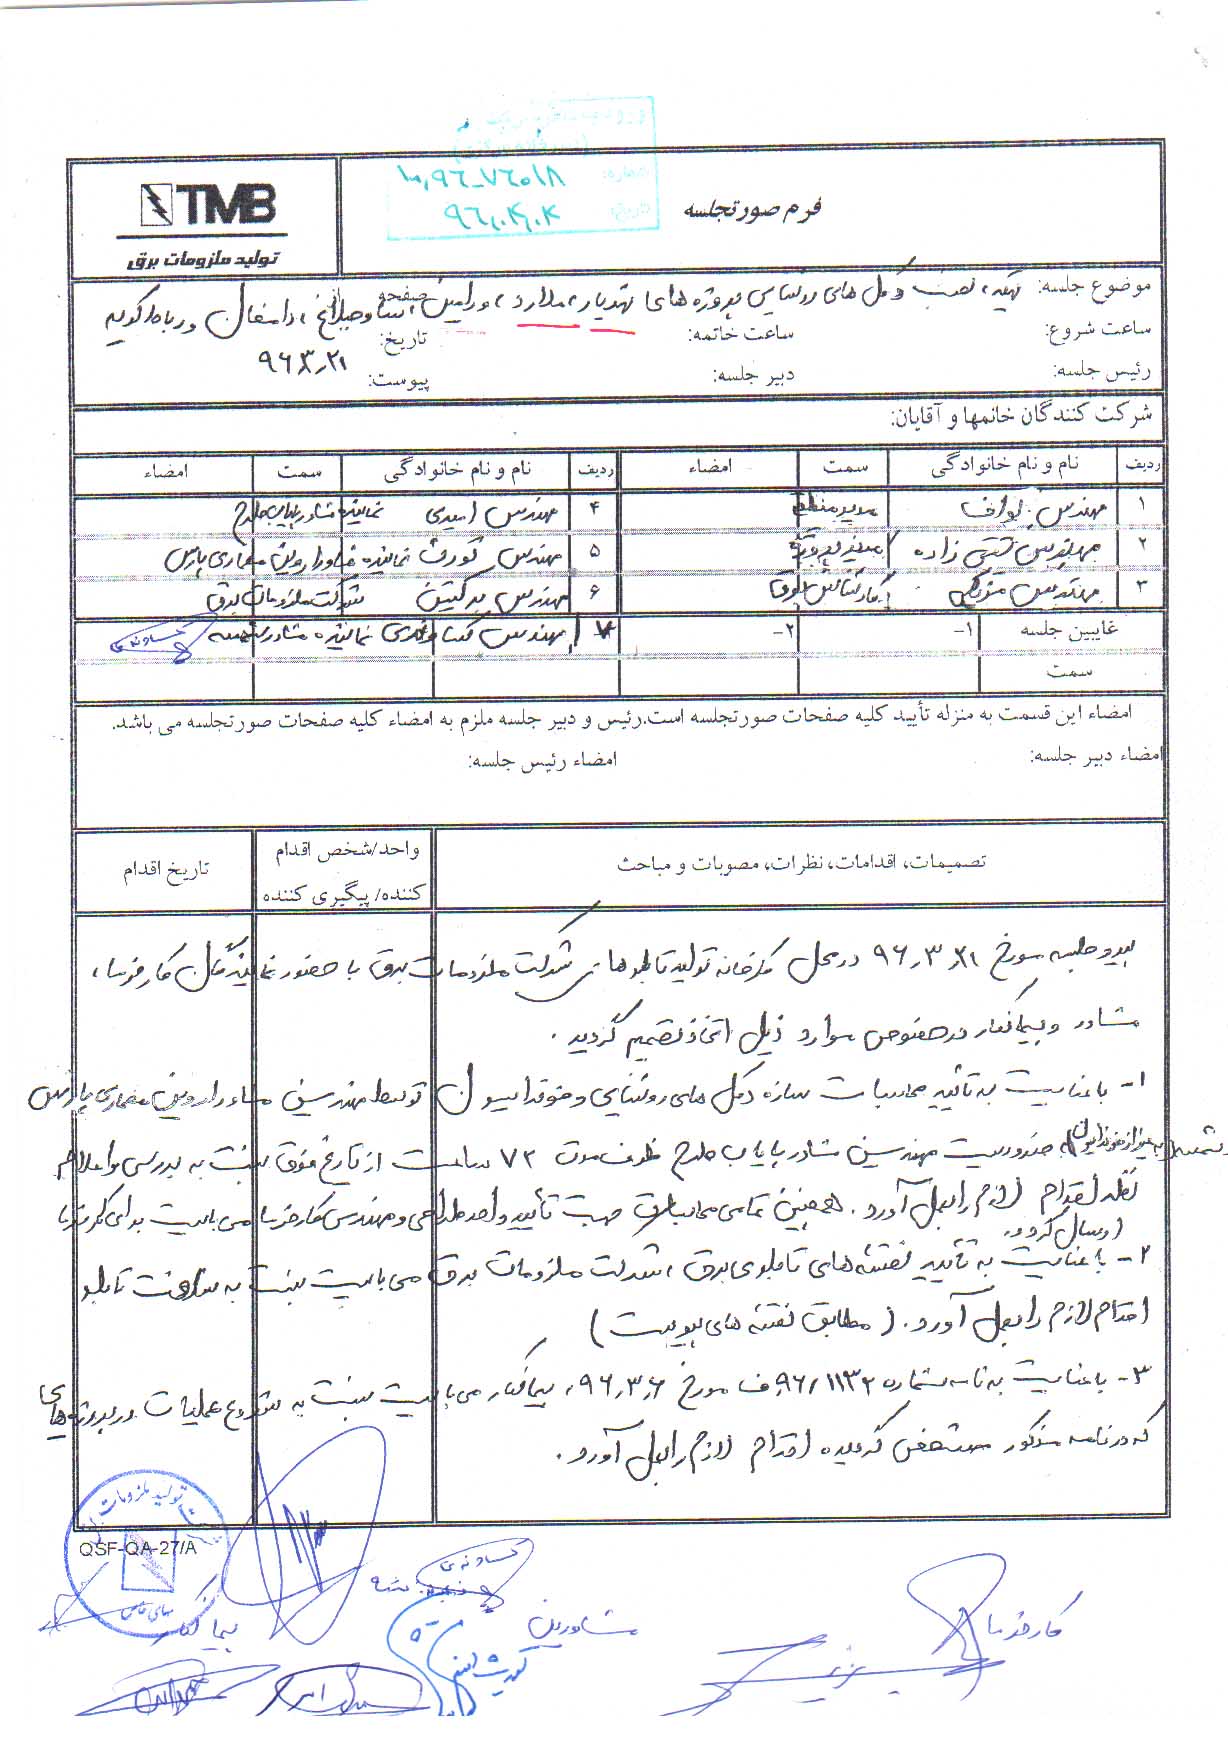 شماره: ۱۰,۹۶-۷۶۰۱۸
تاریخ: ۹۶,۰۴,۰۴
TMB
تولید ملزومات برق
فرم صورتجلسه
موضوع جلسه: تهیه، نصب دکل های روشنایی پروژه های شهریار، ملارد، ورامین، دامغان و رباط کریم
صفحه از
ساعت شروع: ساعت خاتمه: تاریخ: ۹۶,۳,۲۱
رئیس جلسه: دبیر جلسه: پیوست:
شرکت کنندگان خانمها و آقایان:
ردیف نام و نام خانوادگی سمت امضاء ردیف نام و نام خانوادگی سمت امضاء
۱ مهندس ۴ مهندس اسدی نماینده مشاور پایاب طرح
۲ مهندس تقی زاده مدیر پروژه ۵ مهندس کورش نماینده مشاور اروین معماری پارس
۳ مهندس کارشناس برق ۶ مهندس شرکت ملزومات برق
غایبین جلسه ۱- ۲- ۷ مهندس نماینده مشاور
سمت
امضاء این قسمت به منزله تأیید کلیه صفحات صورتجلسه است.رئیس و دبیر جلسه ملزم به امضاء کلیه صفحات صورتجلسه می باشد.
امضاء دبیر جلسه: امضاء رئیس جلسه:
تصمیمات، اقدامات، نظرات، مصوبات و مباحث واحد/شخص اقدام کننده/ پیگیری کننده تاریخ اقدام
پیرو جلسه مورخ ۹۶,۳,۲۱ در محل کارخانه تولید تابلوهای شرکت ملزومات برق با حضور نمایندگان کارفرما،
مشاور و پیمانکار در خصوص موارد ذیل اتخاذ تصمیم گردید.
۱- با عنایت به تأیید محاسبات سازه دکل های روشنایی و فونداسیون توسط مهندسین مشاور اروین معماری پارس
ضروریست مهندسین مشاور پایاب طرح ظرف مدت ۷۲ ساعت از تاریخ فوق نسبت به بررسی و اعلام
نظر اقدام لازم را بعمل آورد. همچنین تمامی محاسبات جهت تأیید واحد طراحی و مهندسی کارفرما می بایست برای کارفرما
ارسال گردد.
۲- با عنایت به تأیید نقشه های تابلوی برق، شرکت ملزومات برق می بایست نسبت به ساخت تابلو
اقدام لازم را بعمل آورد. (مطابق نقشه های پیوست)
۳- با عنایت به نامه شماره ۹۶/۱۱۳۲/ف مورخ ۹۶,۳,۶، پیمانکار می بایست نسبت به شروع عملیات در پروژه های
که در نامه مذکور مشخص گردیده اقدام لازم را بعمل آورد.
QSF-QA-27/A
شرکت تولید ملزومات برق
سهامی خاص
کارفرما
مشاورین
پیمانکار